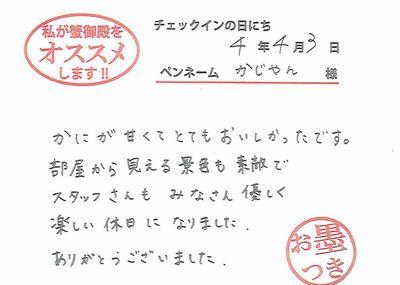 私が蟹御殿を
オススメ
します!!
チェックインの日にち
4年4月3日
ペンネーム かじやん 様
かにが甘くてとてもおいしかったです。
部屋から見える景色も素敵で
スタッフさんもみなさん優しく
楽しい休日になりました.
ありがとうございました.
お墨
つき